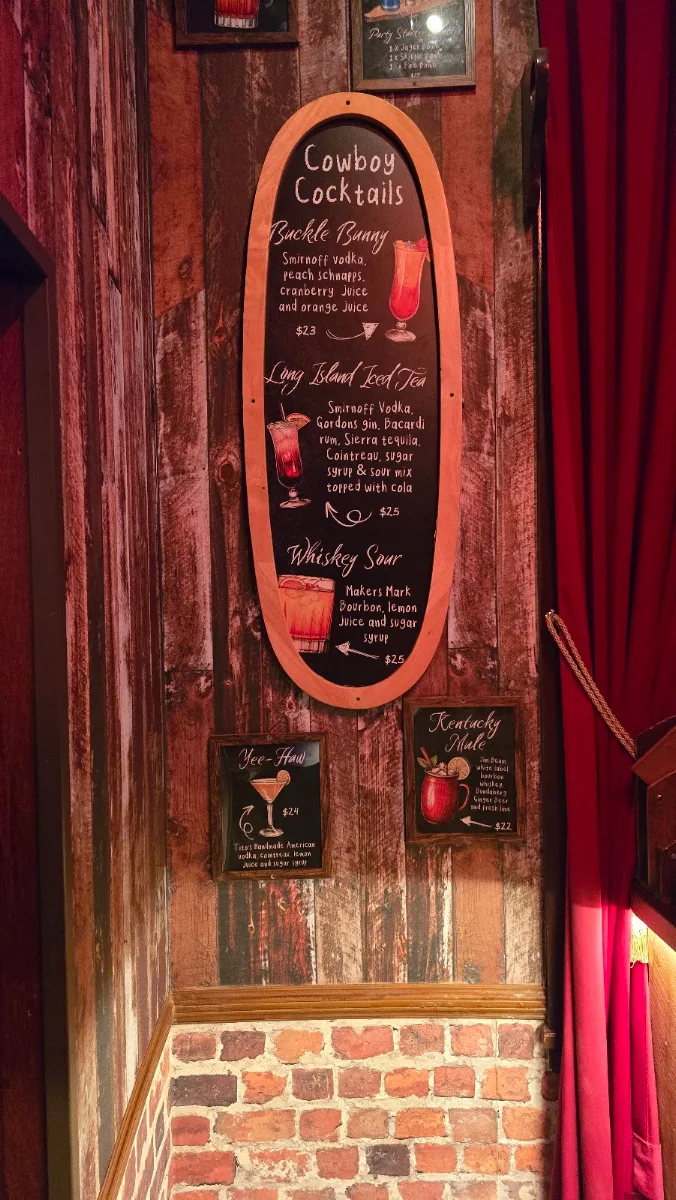 Party Starter
1 x Jager Bomb
Cowboy
Cocktails
Buckle Bunny
Smirnoff vodka,
peach schnapps,
cranberry juice
and orange juice
$23
Long Island Iced Tea
Smirnoff Vodka,
Gordons gin, Bacardi
rum, Sierra tequila,
Cointreau, sugar
syrup & sour mix
topped with cola
$25
Whiskey Sour
Makers Mark
Bourbon, lemon
juice and sugar
syrup
$25
Yee-Haw
$24
Tito's Handmade American
vodka, cointreau, lemon
juice and sugar syrup
Kentucky
Mule
Jim Beam
white label
bourbon
whiskey
Bundaberg
Ginger Beer
and fresh lime
$22